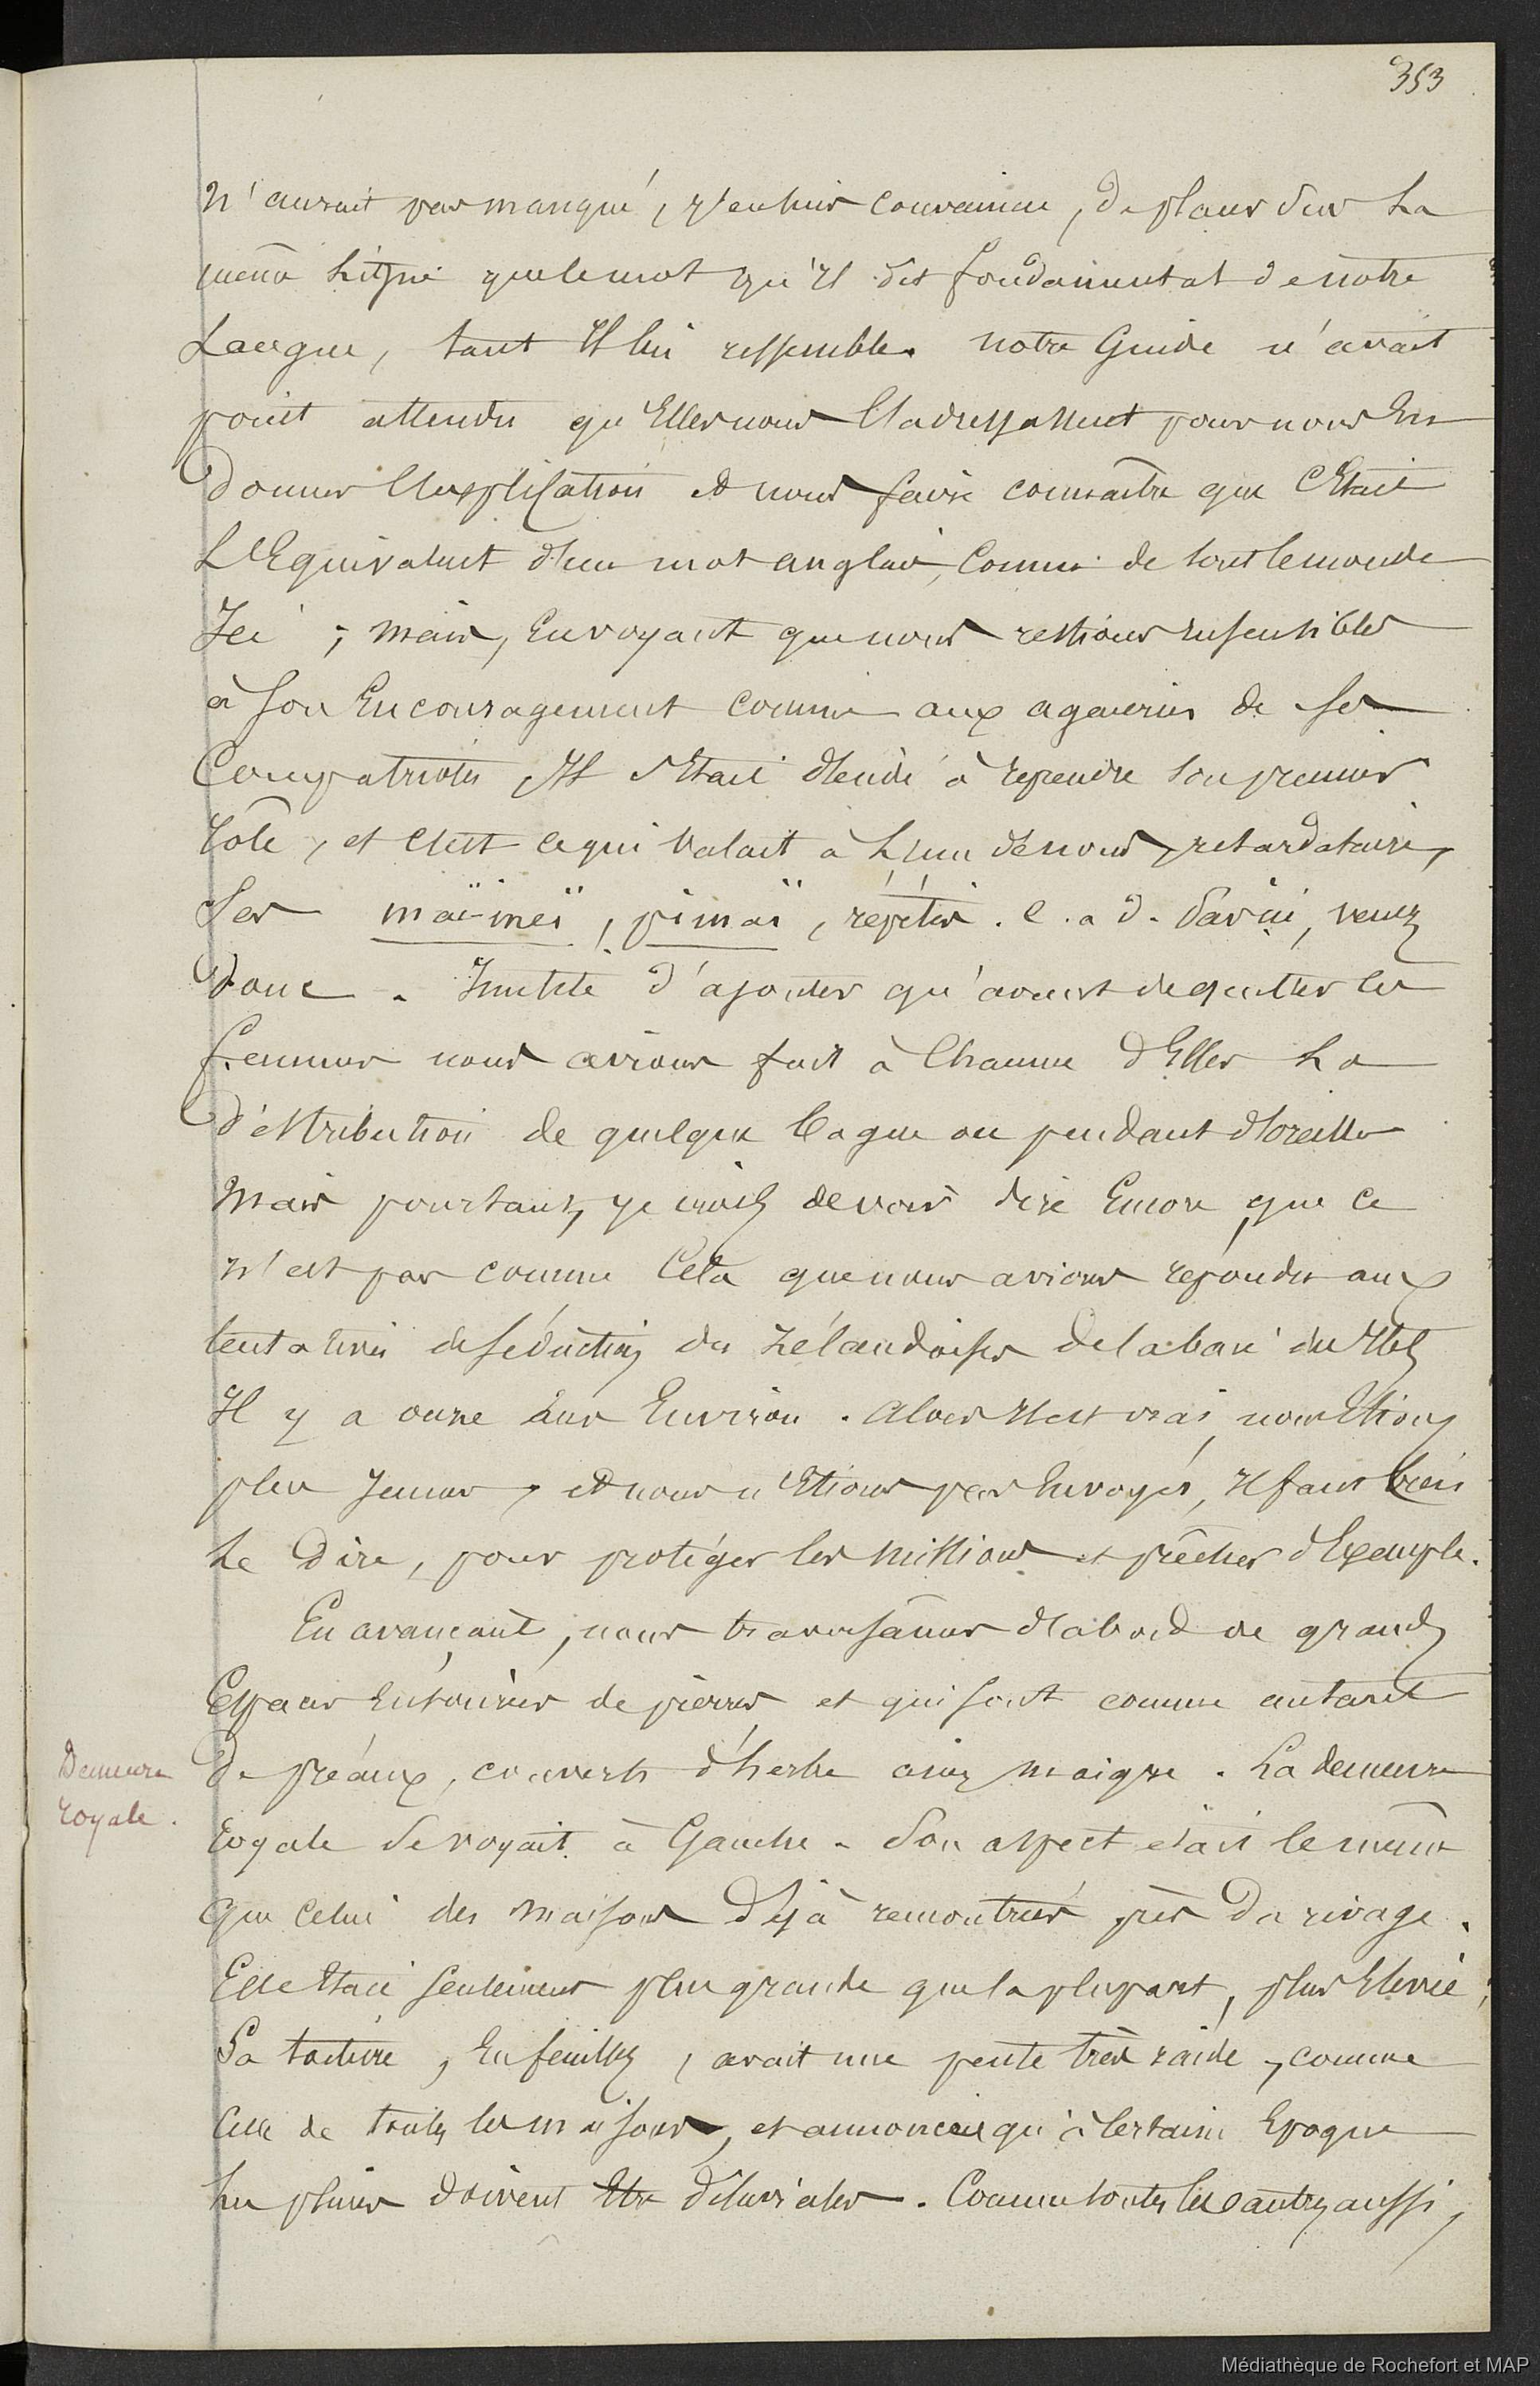 353
n'aurait pas manqué, j'en suis convaincu, de placer sur la
même ligne que le mot qu'il dit fondamental de notre
Langue, tant il lui ressemble. notre Guide n'avait
point attendu qu'Elles nous l'adressassent pour nous En
donner l'explication et nous faire connaître que c'Etait
L'Equivalent d'un mot anglais, connu de tout le monde
Ici ; mais, En voyant que nous restions insensibles
à son Encouragement comme aux agaceries de ses
Compatriotes Il s'Etait décidé à reprendre son premier
rôle, et c'est ce qui valait à L'un de nous, retardataire,
Les maï-meï, pimaï, répétés. c. a d. Par ici, venez
donc. Inutile d'ajouter qu'avant de quitter les
femmes nous avions fait à Chacune d'Elles La
distribution de quelque bague ou pendant d'oreilles
Mais pourtant, je crois devoir dire Encore, que ce
n'est pas comme Cela que nous avions répondu aux
tentatives de séduction des zélandaises de la baie des Iles
Il y a onze ans Environ. alors il est vrai, nous Etions
plus Jeunes, et nous n'Etions pas Envoyés, il faut bien
Le Dire, pour protéger les missions et prêcher d'Exemple.
En avançant, nous traversâmes d'abord de grands
Espaces Entourés de pierres et qui sont comme autant
De préaux, couverts d'herbe assez maigre. La demeure
Demeure
royale.
royale se voyait à Gauche. Son aspect était le même
que celui des maisons Déjà rencontrées près Du rivage.
Elle Etait seulement plus grande que la plupart, plus Elevée ;
Sa toiture, En feuilles, avait une pente très raide, comme
Celle de toutes les maisons, et annonçait qu'à Certaine Epoque
Les pluies doivent Etre diluviales. Comme toutes les autres aussi,
Médiathèque de Rochefort et MAP